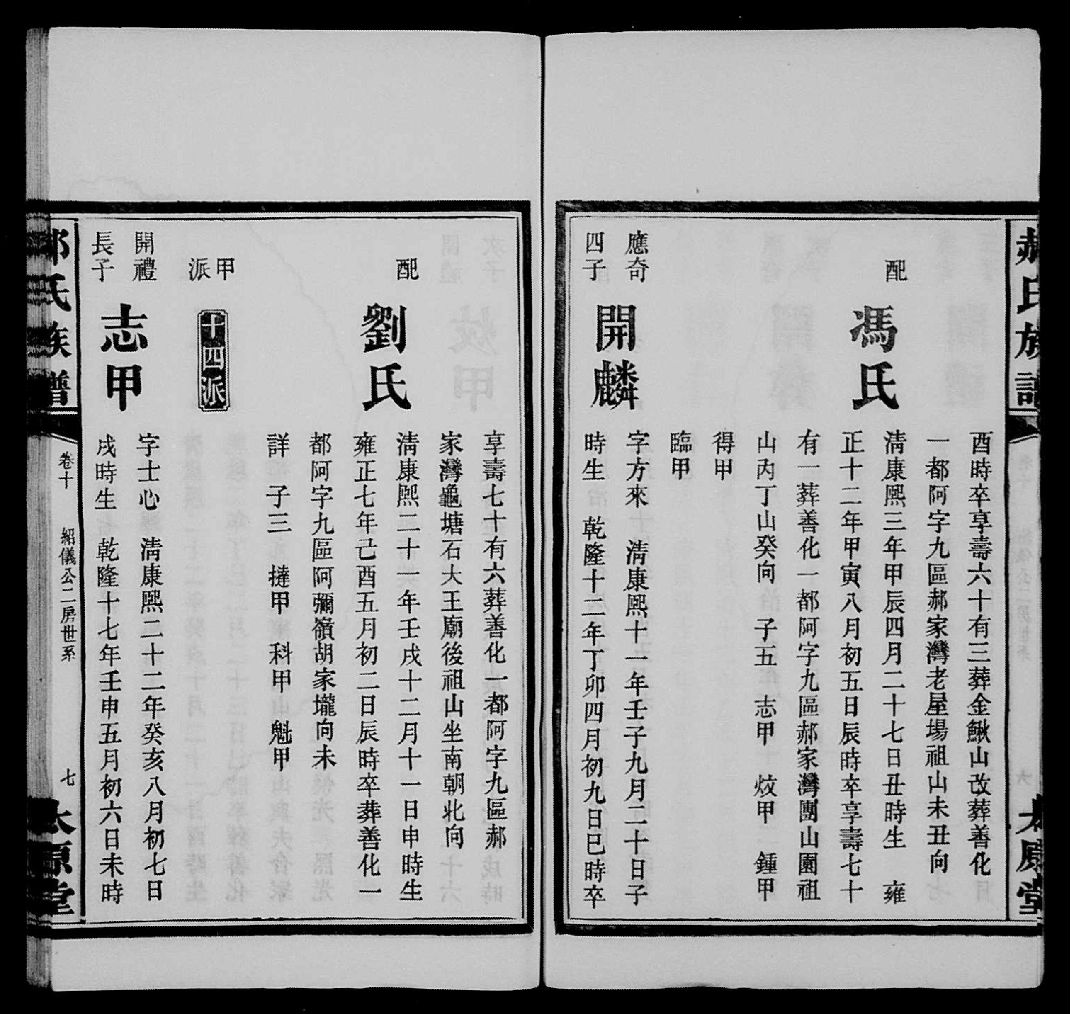 郝氏族譜
太原堂
酉時卒享壽六十有三葬金鰍山改葬善化
一都阿字九區郝家灣老屋場祖山未丑向
配
馮氏
清康熙三年甲辰四月二十七日丑時生 雍
正十二年甲寅八月初五日辰時卒享壽七十
有一葬善化一都阿字九區郝家灣團山園祖
山內丁山癸向 子五 志甲 烄甲 鍾甲
得甲
臨甲
應奇
四子
開麟
字方來 清康熙十一年壬子九月二十日子
時生 乾隆十二年丁卯四月初九日巳時卒
享壽七十有六葬善化一都阿字九區郝
家灣龜塘石大王廟後祖山坐南朝北向
配
劉氏
清康熙二十一年壬戌十二月十一日申時生
雍正七年己酉五月初二日辰時卒葬善化一
都阿字九區阿彌嶺胡家壠向未
詳 子三 撻甲 科甲 魁甲
甲
派
十四派
開禮
長子
志甲
字士心 清康熙二十二年癸亥八月初七日
戌時生 乾隆十七年壬申五月初六日未時
郝氏族譜
卷十
紹儀公二房世系
七
太原堂